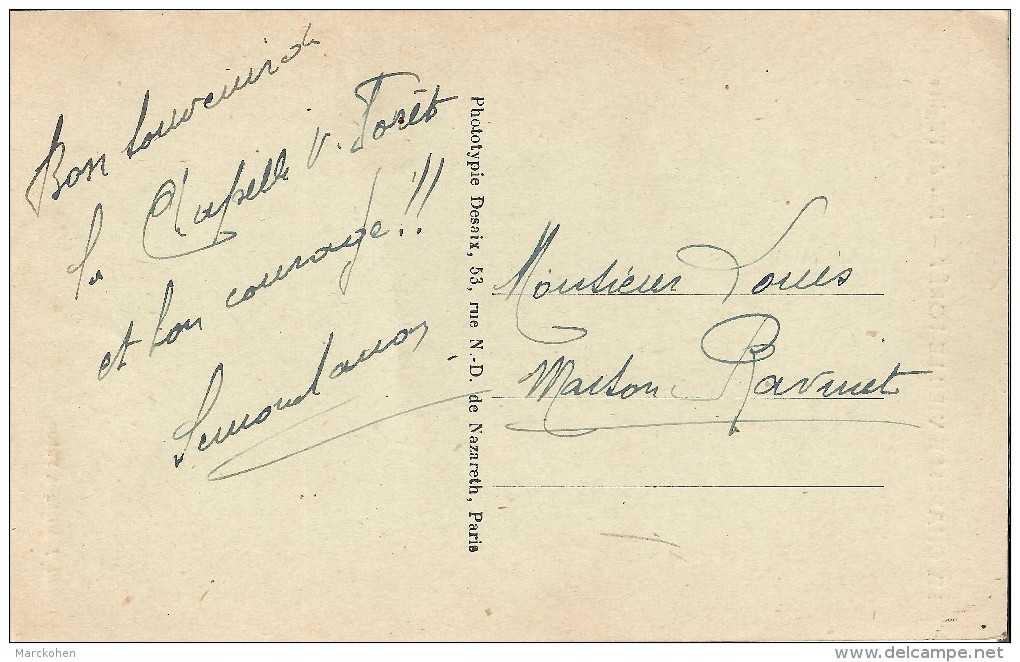 Bon Souvenir de
la Chapelle V. Forêt
et bon courage!!
Phototypie Desaix, 53, rue N.-D. de Nazareth, Paris
Monsieur Louis
Maison Ravinet
Marckohen
www.delcampe.net